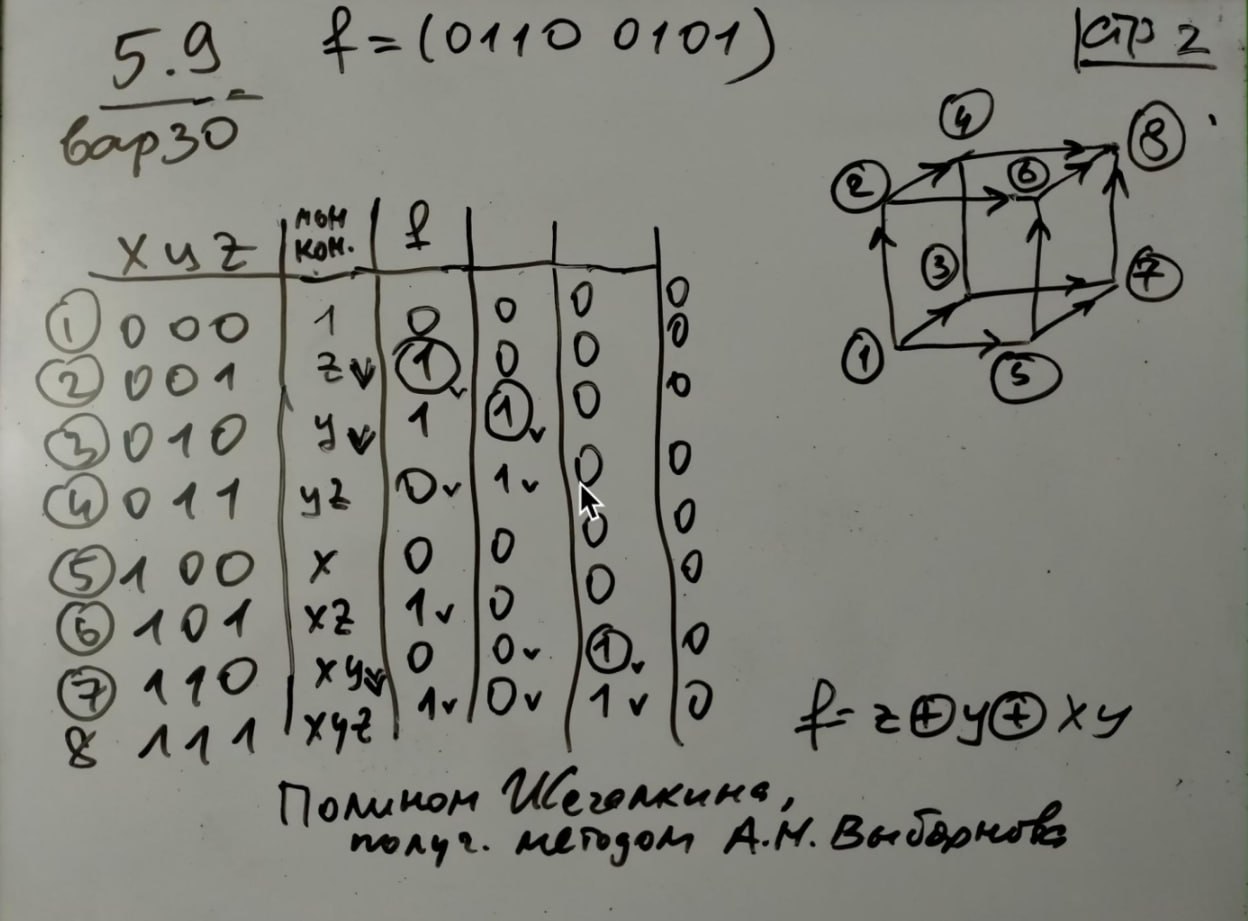 5.9 f=(0110 0101) стр 2
вар30
④ ⑧
② ⑥
③ ⑦
① ⑤
x y z мон кон. f
① 0 0 0 1 0 0 0 0
② 0 0 1 z ① 0 0 0
③ 0 1 0 y 1 ① 0 0
④ 0 1 1 yz 0 1 0 0
⑤ 1 0 0 x 0 0 0 0
⑥ 1 0 1 xz 1 0 0 0
⑦ 1 1 0 xy 0 0 ① 0
8 1 1 1 xyz 1 0 1 0
f= z⊕y⊕xy
Полином Жегалкина,
получ. методом А.Н. Выборнова